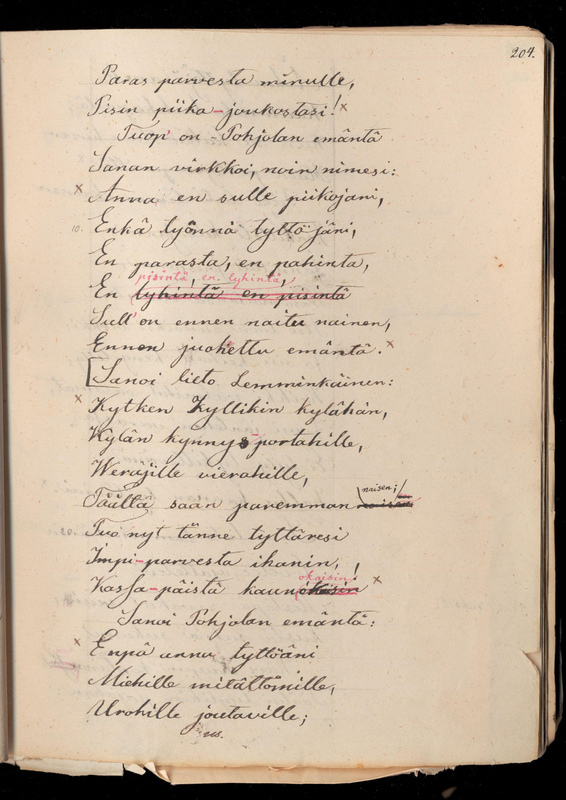 204.
Paras parvesta minulle,
Pisin piika-joukostasi! x
Tuop' on Pohjolan emäntä
Sanan virkkoi, noin nimesi:
x Anna en sulle piikojani,
10. Enkä työnnä tyttöjäni,
En parasta, en pahinta,
pisintä, en lyhintä,
En lyhintä en pisintä
Sull' on ennen naitu nainen,
Ennen juohettu emäntä. x
[Sanoi lieto Lemminkäinen:
x Kytken Kyllikin kylähän,
Kylän kynnys-portahille,
Weräjille vierahille,
naisen;
Täältä saan paremman
Tuo nyt tänne tyttäresi
Impi-parvesta ihanin,
okaisin! x
Kassa-päistä kaunokaisin
Sanoi Pohjolan emäntä:
x Enpä anna tyttöäni
Miehille mitättömille,
Urohille joutaville;